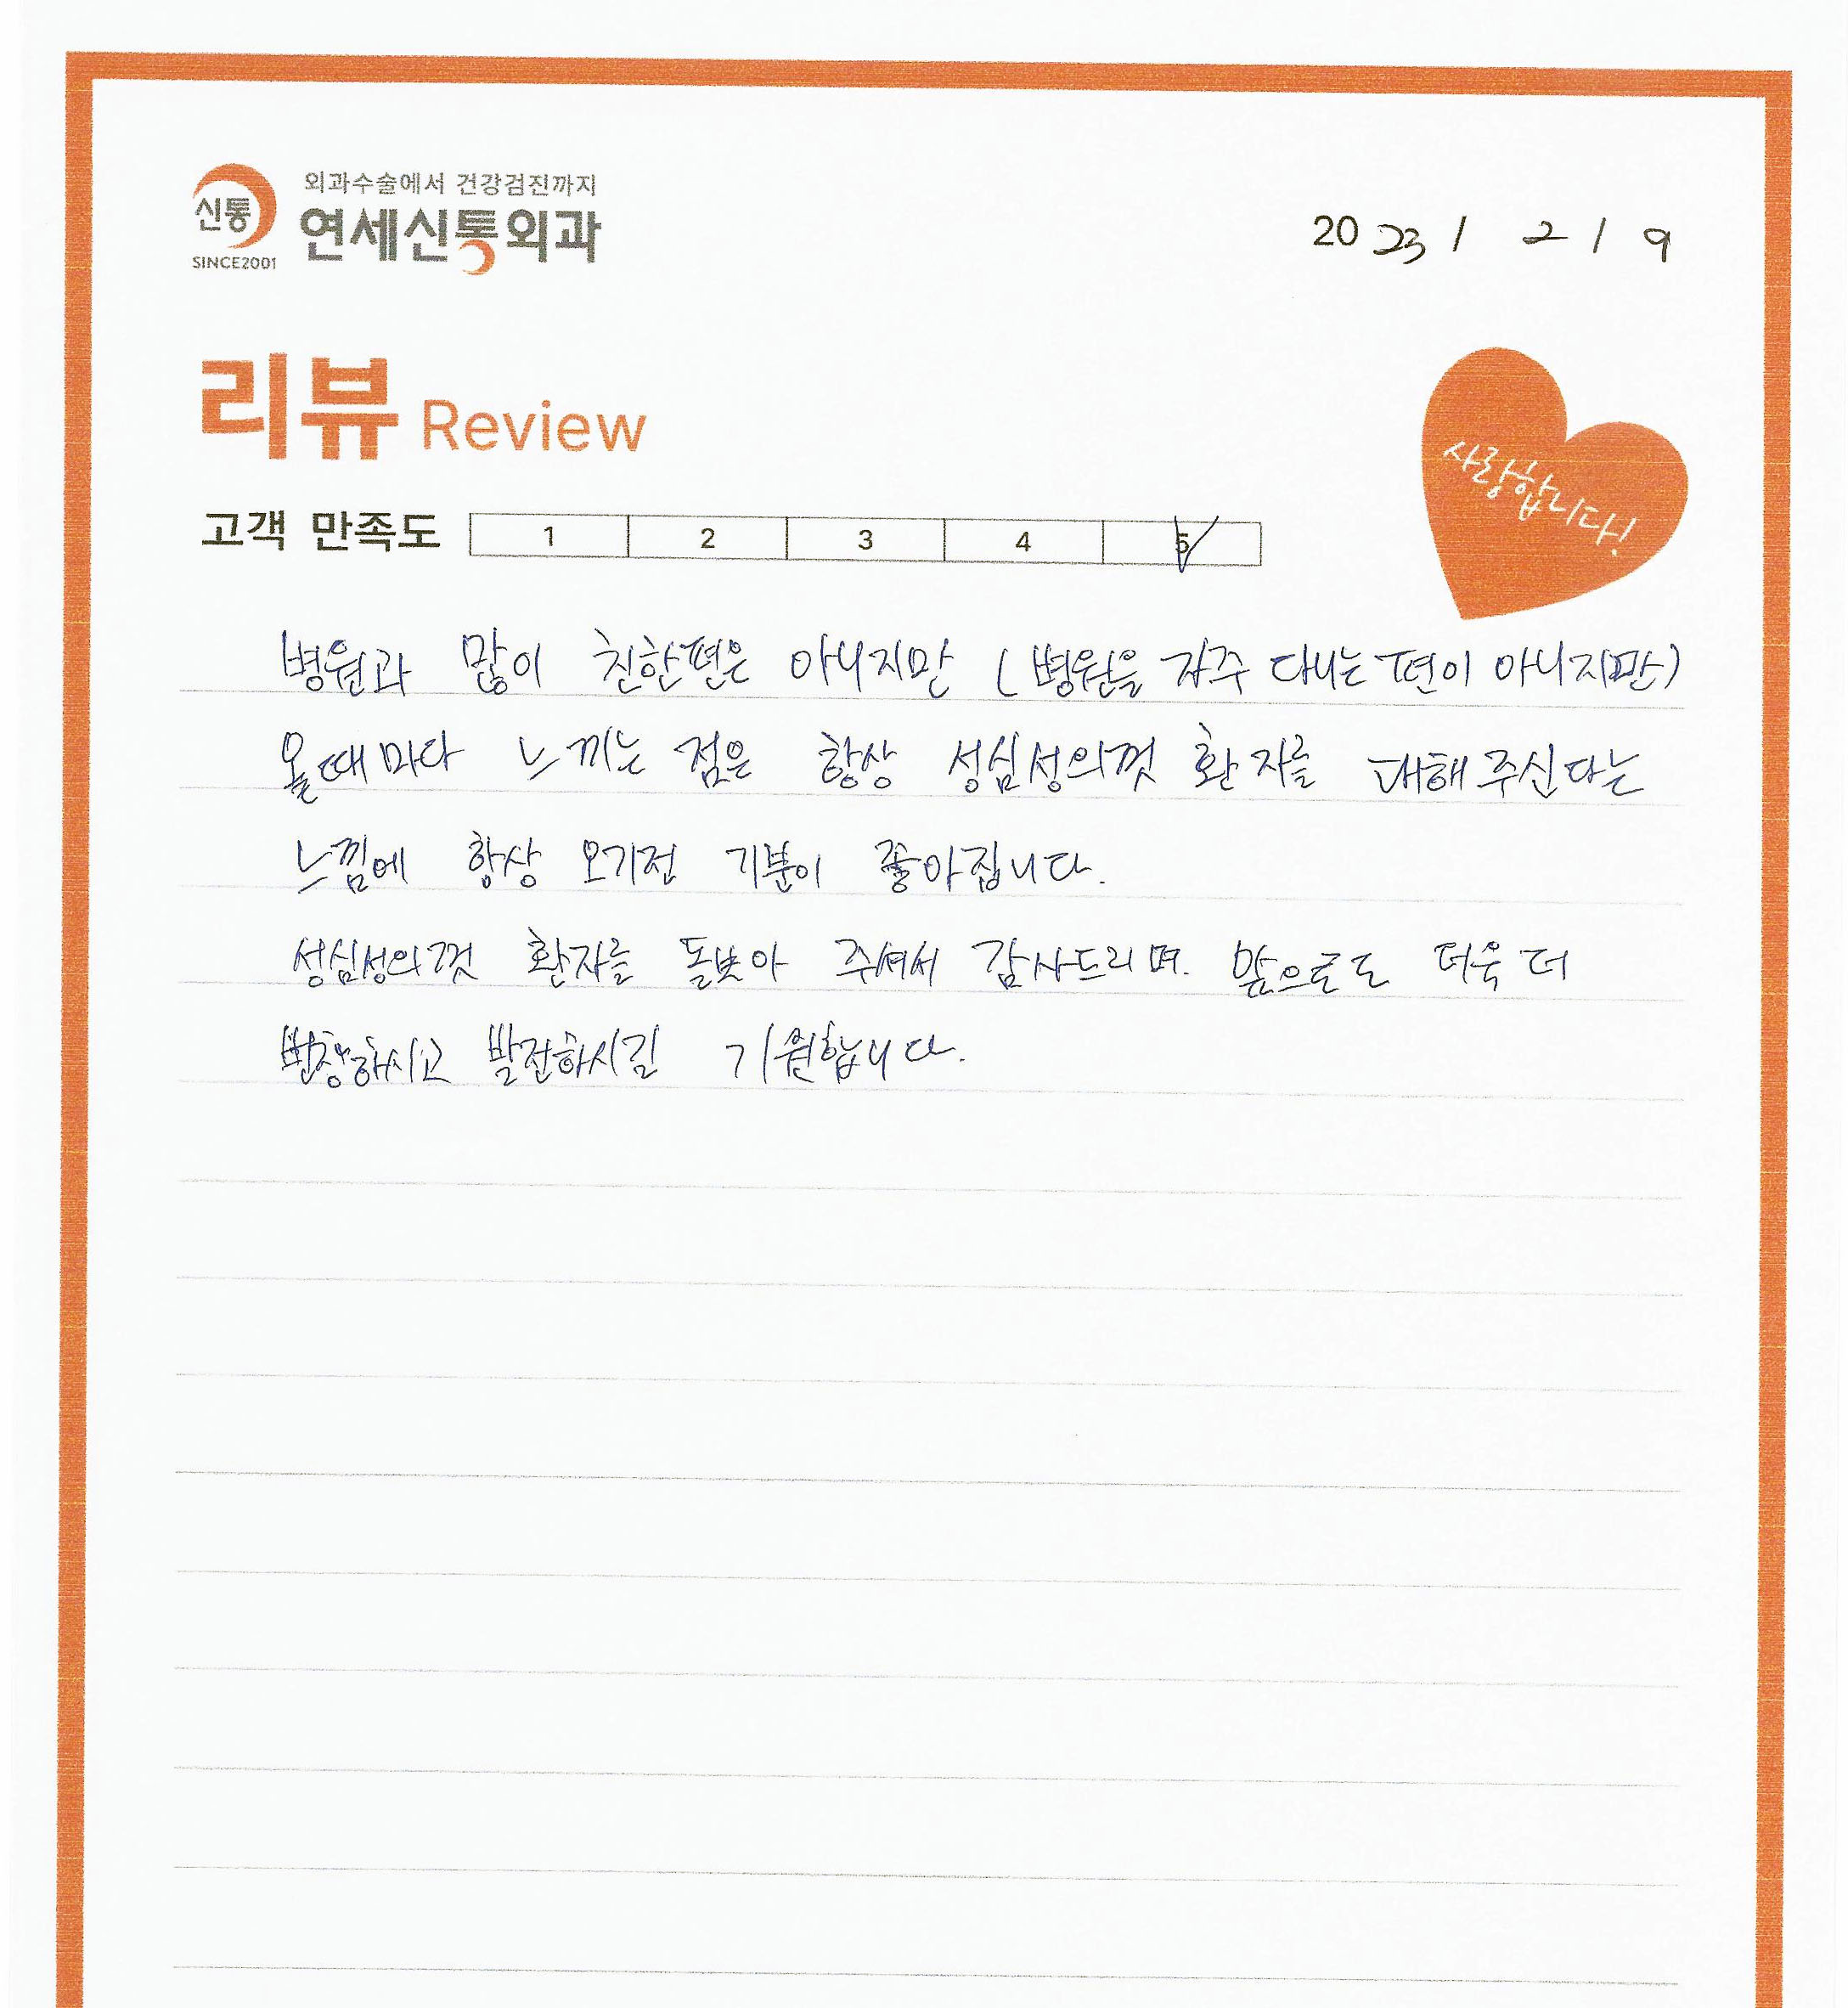 외과수술에서 건강검진까지
신통 연세신통외과
SINCE2001
2023 / 2 / 9
리뷰 Review
사랑합니다!
고객 만족도 1 2 3 4 5
병원과 많이 친한편은 아니지만 (병원을 자주 다니는 편이 아니지만)
올때마다 느끼는 점은 항상 성심성의껏 환자를 대해주신다는
느낌에 항상 오기전 기분이 좋아집니다.
성심성의껏 환자를 돌봐아 주셔서 감사드리며. 앞으로도 더욱 더
번창하시고 발전하시길 기원합니다.